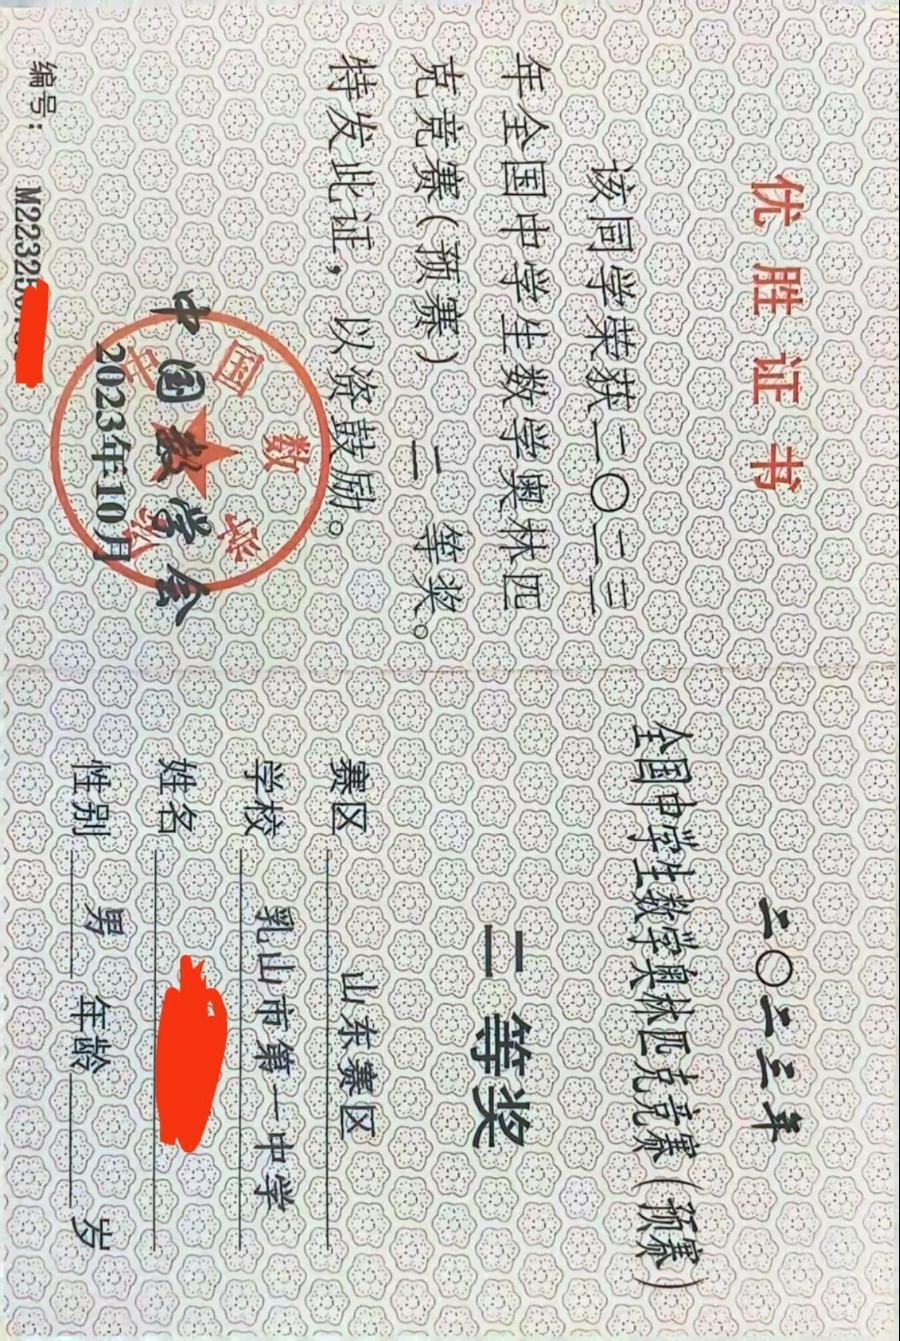 优胜证书
该同学荣获二〇二三
年全国中学生数学奥林匹
克竞赛(预赛) 二 等奖。
特发此证,以资鼓励。
中国数学会
中国数学会
2023年10月
编号: M22325
二〇二三年
全国中学生数学奥林匹克竞赛(预赛)
二等奖
赛区 山东赛区
学校 乳山市第一中学
姓名
性别 男 年龄 岁